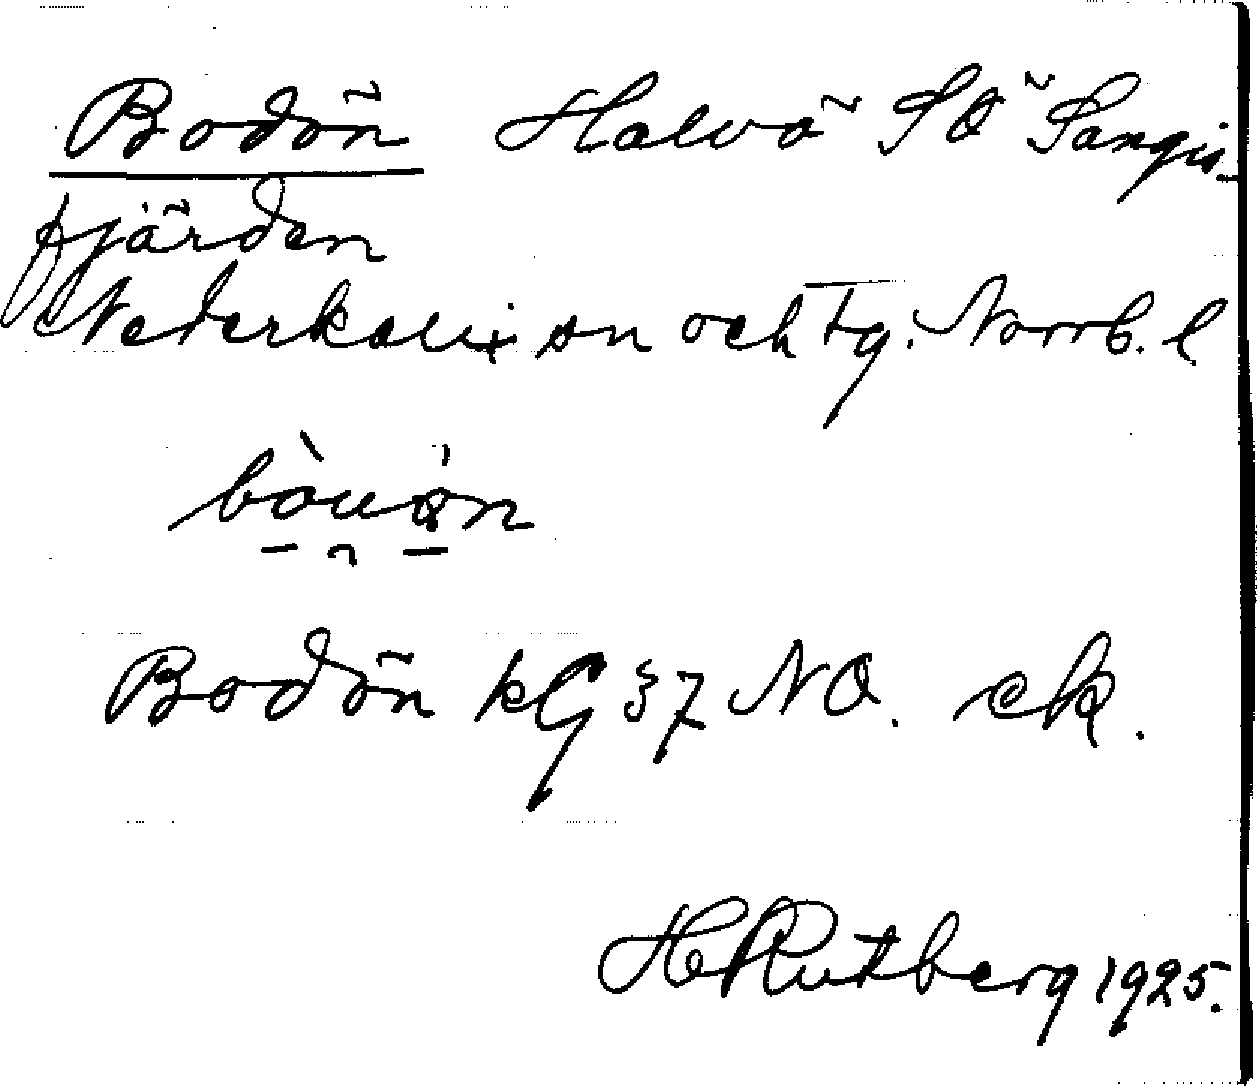 Bodön Halvö SÖ Sangis-
fjärden
Nederkalix sn och tg. Norrb. l
bòuön
Bodön kG 37 NO. ek.
H Rutberg 1925.